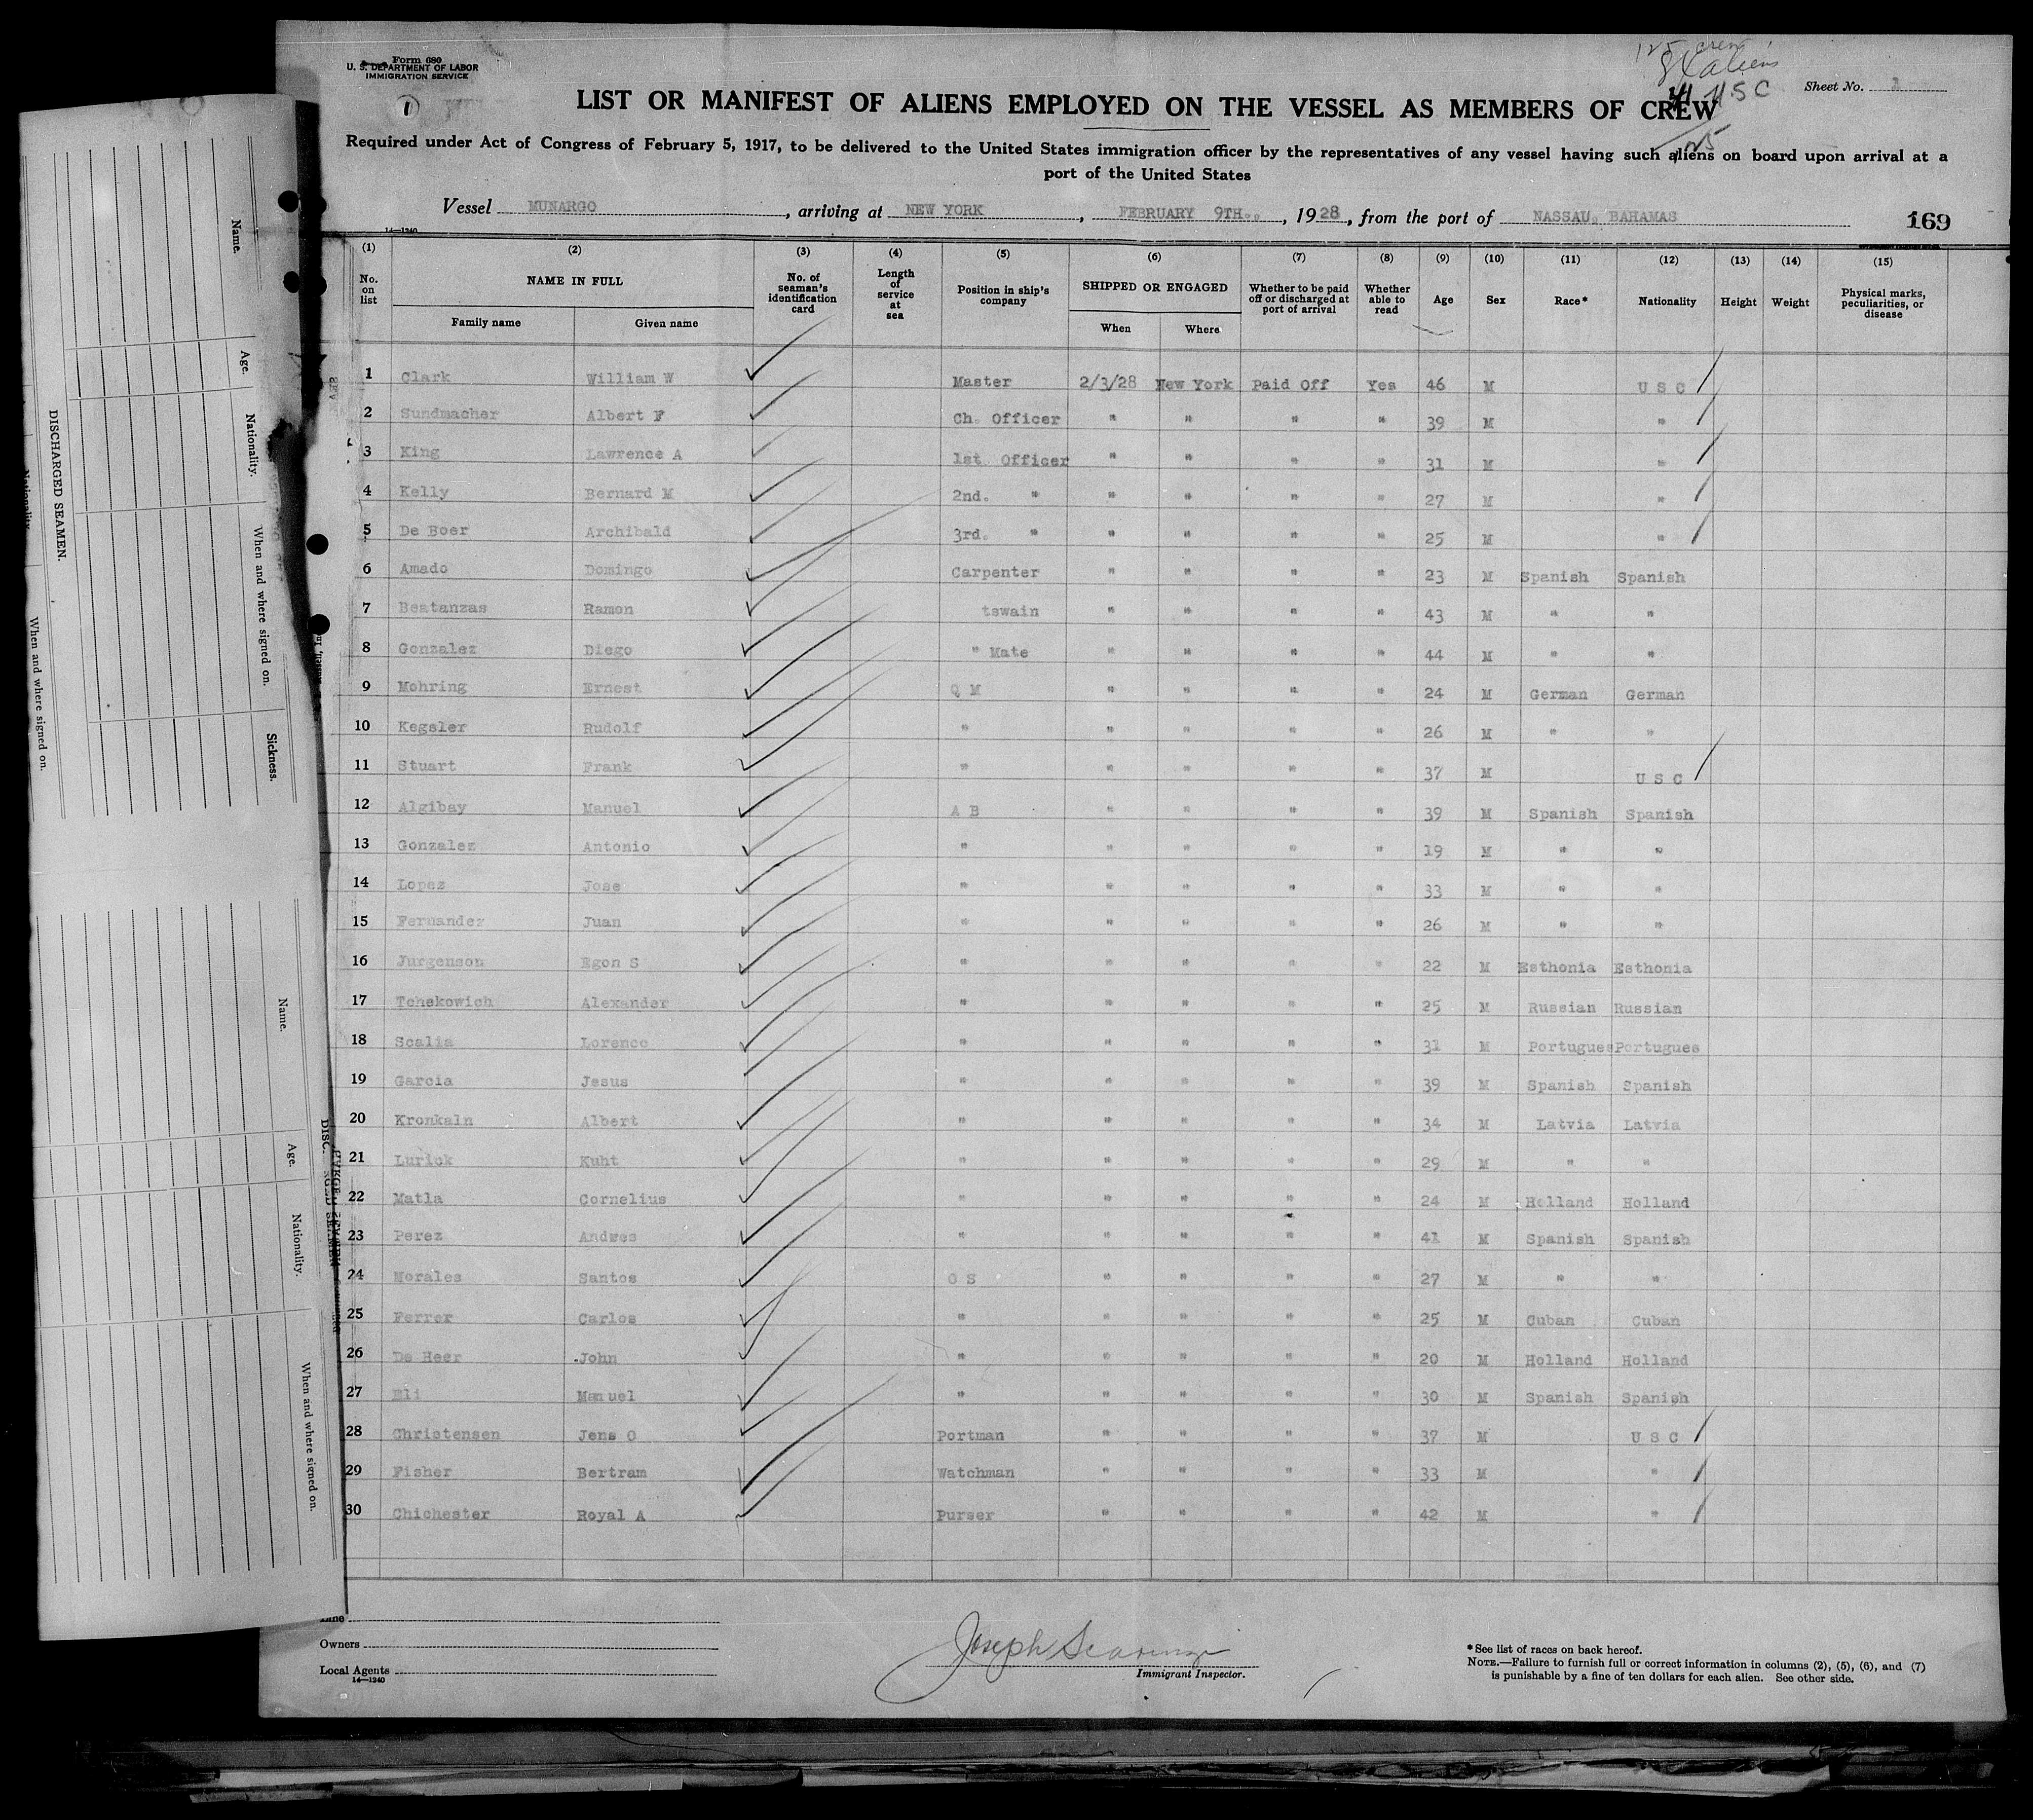 Form 680
U. S. DEPARTMENT OF LABOR
IMMIGRATION SERVICE
1
125 crew
84 aliens
41 USC
125
Sheet No. 1
LIST OR MANIFEST OF ALIENS EMPLOYED ON THE VESSEL AS MEMBERS OF CREW
Required under Act of Congress of February 5, 1917, to be delivered to the United States immigration officer by the representatives of any vessel having such aliens on board upon arrival at a
port of the United States
Vessel MUNARGO, arriving at NEW YORK, FEBRUARY 9TH., 1928, from the port of NASSAU. BAHAMAS
169
14—1240
(1) (2) (3) (4) (5) (6) (7) (8) (9) (10) (11) (12) (13) (14) (15)
No. on list NAME IN FULL Family name Given name No. of seaman's identification card Length of service at sea Position in ship's company SHIPPED OR ENGAGED When Where Whether to be paid off or discharged at port of arrival Whether able to read Age Sex Race* Nationality Height Weight Physical marks, peculiarities, or disease
1 Clark William W Master 2/3/28 New York Paid Off Yes 46 M U S C
2 Sundmacher Albert F Ch. Officer " " " " 39 M "
3 King Lawrence A 1st Officer " " " " 31 M "
4 Kelly Bernard M 2nd. " " " " " 27 M "
5 De Boer Archibald 3rd. " " " " " 25 M "
6 Amado Domingo Carpenter " " " " 23 M Spanish Spanish
7 Beatanzas Ramon tswain " " " " 43 M " "
8 Gonzalez Diego " Mate " " " " 44 M " "
9 Mohring Ernest Q M " " " " 24 M German German
10 Kegsler Rudolf " " " " " 26 M " "
11 Stuart Frank " " " " " 37 M U S C
12 Algibay Manuel A B " " " " 39 M Spanish Spanish
13 Gonzalez Antonio " " " " " 19 M " "
14 Lopez Jose " " " " " 33 M " "
15 Fernandez Juan " " " " " 26 M " "
16 Jurgenson Egon S " " " " " 22 M Esthonia Esthonia
17 Tchekowich Alexander " " " " " 25 M Russian Russian
18 Scalia Lorenco " " " " " 31 M Portugues Portugues
19 Garcia Jesus " " " " " 39 M Spanish Spanish
20 Kronkaln Albert " " " " " 34 M Latvia Latvia
21 Lurick Kuht " " " " " 29 M " "
22 Matla Cornelius " " " " " 24 M Holland Holland
23 Perez Andres " " " " " 41 M Spanish Spanish
24 Morales Santos O S " " " " 27 M " "
25 Ferrer Carlos " " " " " 25 M Cuban Cuban
26 De Heer John " " " " " 20 M Holland Holland
27 Eli Manuel " " " " " 30 M Spanish Spanish
28 Christensen Jens O Portman " " " " 37 M U S C
29 Fisher Bertram Watchman " " " " 33 M "
30 Chichester Royal A Purser " " " " 42 M "
Line
Owners
Local Agents
14—1240
Joseph
Immigrant Inspector.
*See list of races on back hereof.
NOTE.—Failure to furnish full or correct information in columns (2), (5), (6), and (7)
is punishable by a fine of ten dollars for each alien. See other side.
DISCHARGED SEAMEN.
Name. Age. Nationality. When and where signed on. Sickness.
Nationality. When and where signed on.
Name. Age. Nationality. When and where signed on.